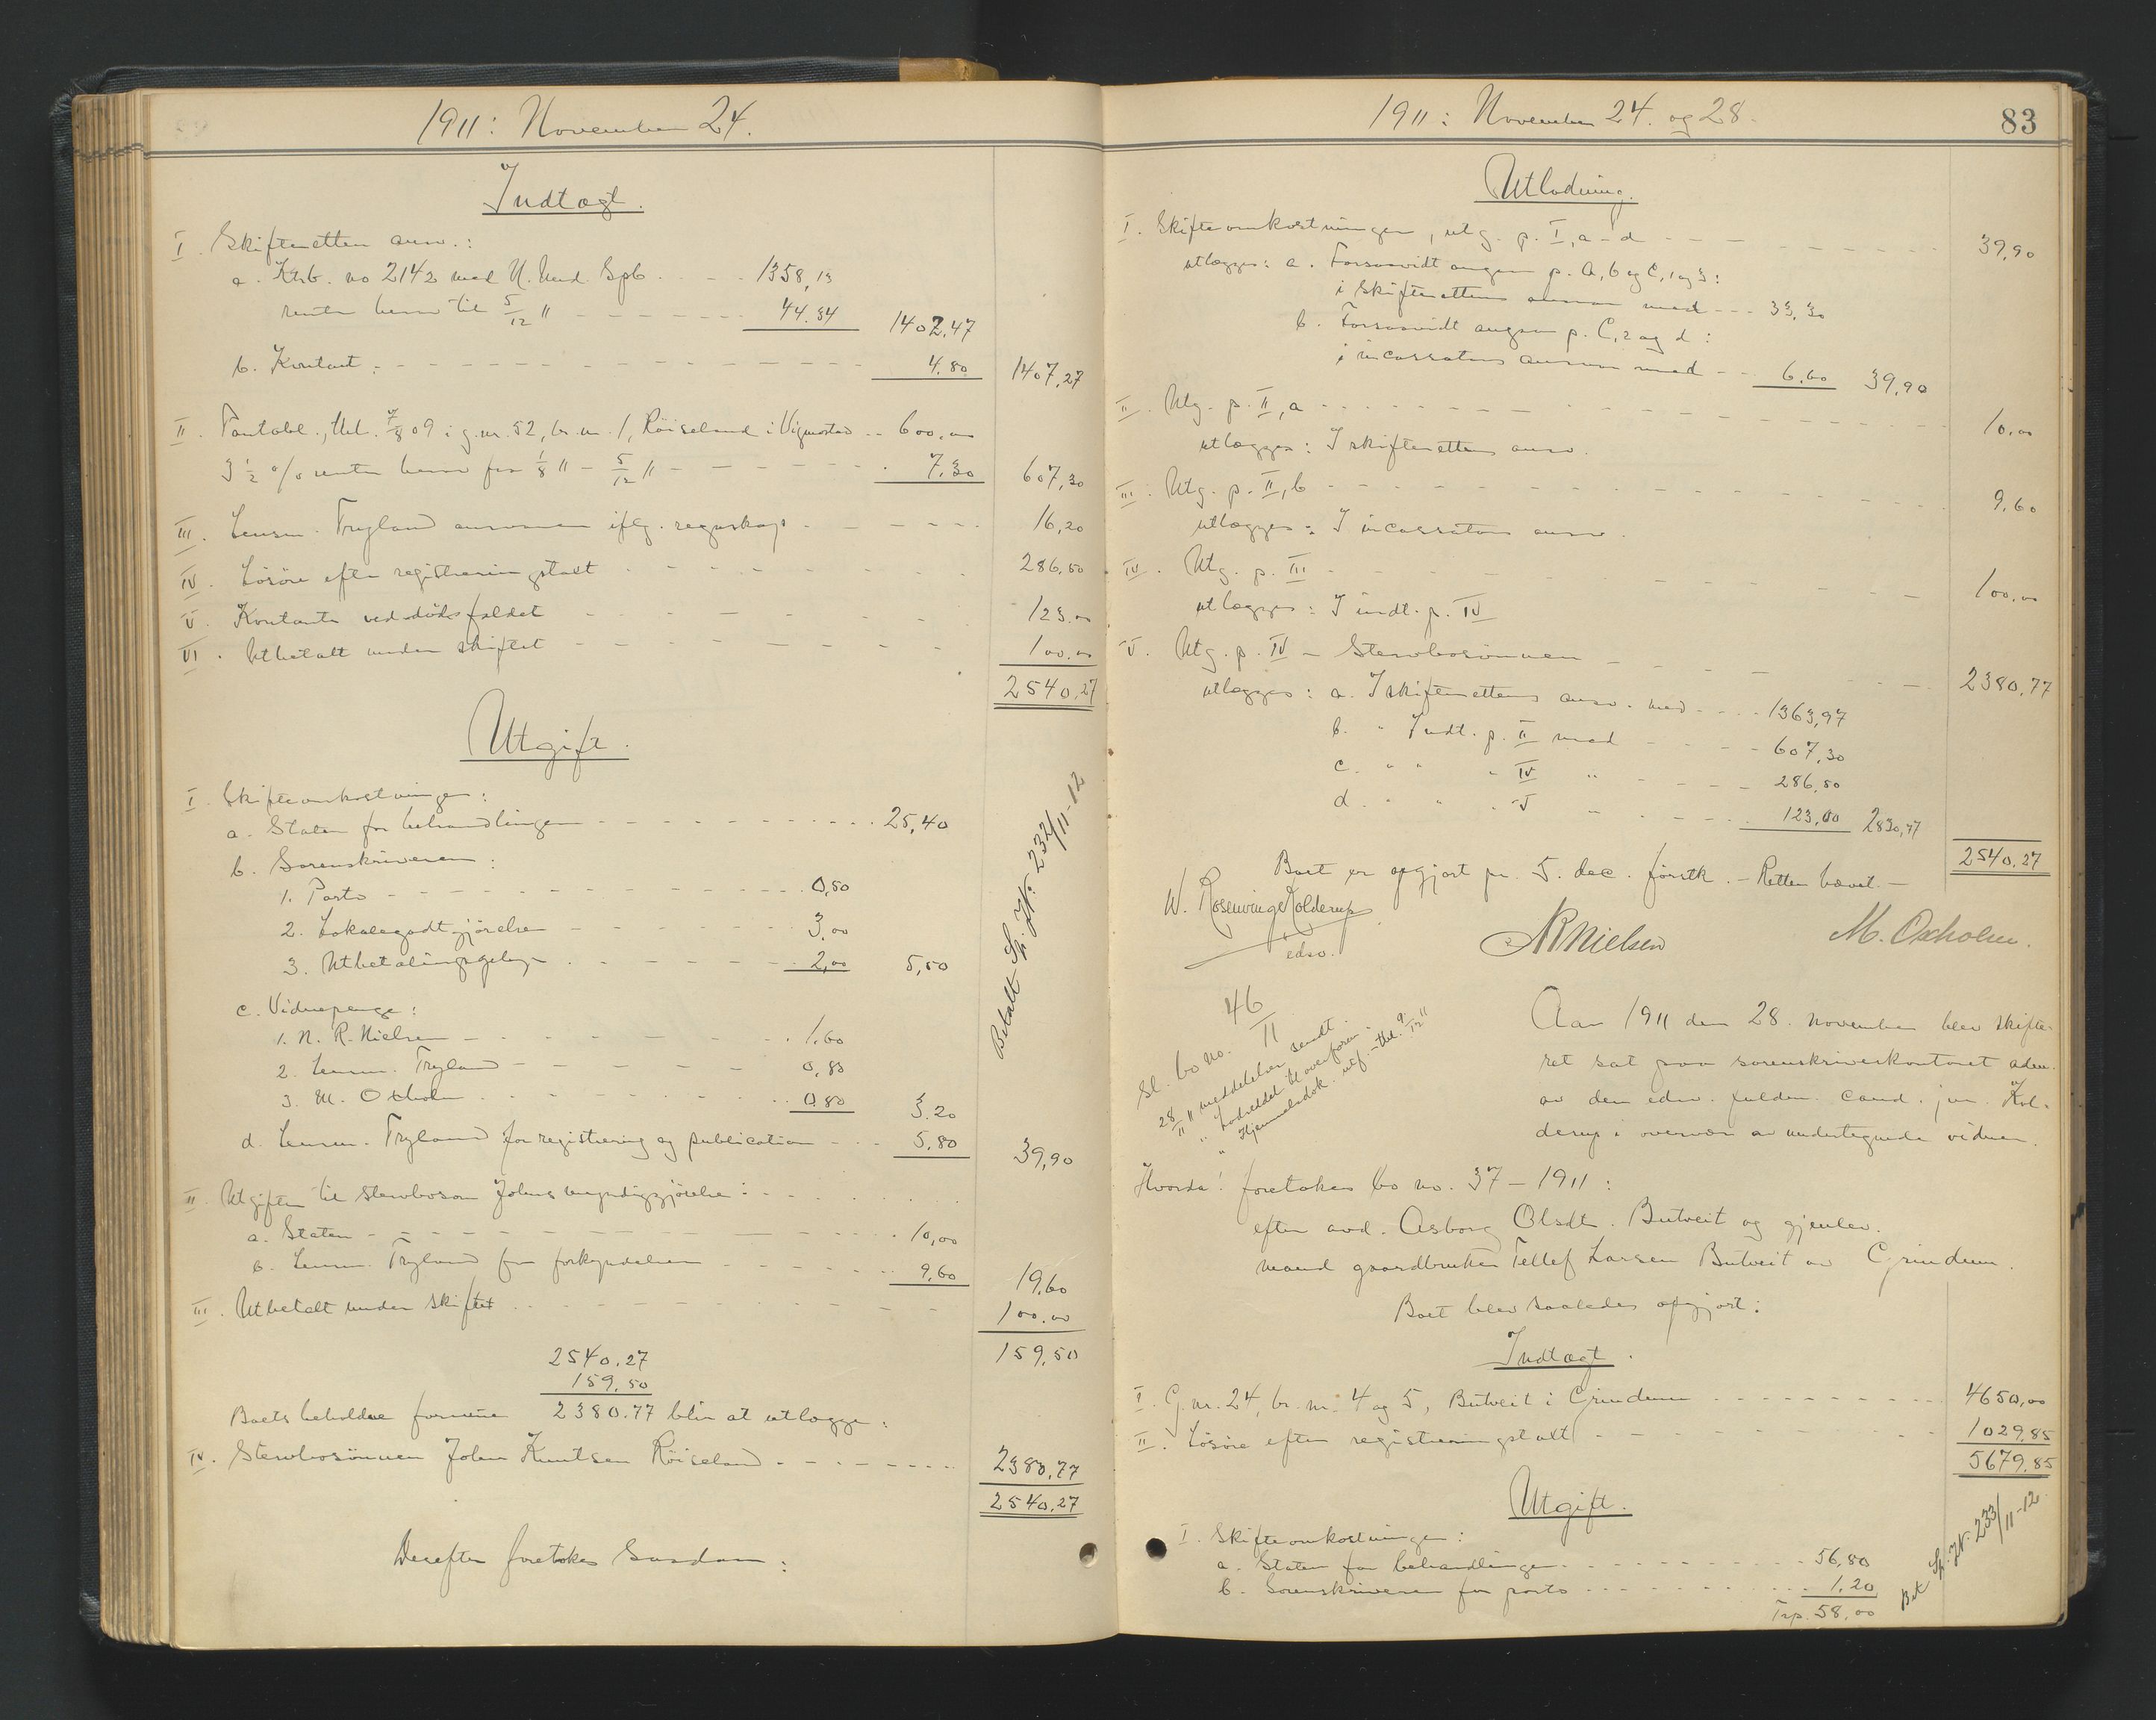 1911: November 24.
Indtægt.
I. Skifteretten ansv.:
a. Ktrb. no 2142 med N. Und. Spb. - - - 1358,13
renter herav til 5/12 " - - - - - - - 44.34 1402,47
b. Kontant - - - - - - - - - - 4.80 1407,27
II. Pantobl., thl. 7/8 09 i g.nr. 52, br.nr. 1, Röiseland i Vigmostad - - 600,00
3 1/2 % renter herav fra 1/8 " - 5/12 " - - - - - - 7,30 607,30
III. Lensm. Tryland ansvarer iflg. regnskap - - - - - 16,20
IV. Lösöre efter registreringstakst - - - - - - - 286,50
V. Kontanter ved dödsfaldet - - - - - - 123.00
VI. Utbetalt under skiftet - - - - - - - 100.00
2540,27
Utgift.
I. Skifteomkostninger:
a. Staten for behandlingen - - - - - - - - - - 25,40
b. Sorenskriveren:
1. Porto - - - - - - - - - - - 0,50
2. Lokalegodtgjörelse - - - - - - - 3,00
3. Utbetalingsgebyr - - - - - - - 2,00 5,50
c. Vidnepenge:
1. N. R. Nielsen - - - - - - - - 1.60
2. Lensm. Tryland - - - - - - 0,80
3. M. Oxholm - - - - - - - - 0.80 3.20
d. Lensm. Tryland for registrering og publication - - - 5,80 39,90
II. Utgifter til stervbosön Johns myndiggjörelse: - - - - - -
a. Staten - - - - - - - - - - - 10,00
b. Lensm. Tryland for forkyndelsen - - - - - - 9,60 19,60
III. Utbetalt under skiftet - - - - - - - - - 100.00
159,50
2540.27
159.50
Boets beholdne formue 2380.77 blir at utlægge:
IV. Stervbosönnen John Knutsen Röiseland - - - - - - - 2380,77
2540,27
Derefter foretokes Saadan:
Betalt Sp. JN. 232/11-12
1911: November 24. og 28.
83
Utlodning.
I. Skifteomkostninger, utg. p. I, a - d - - - - - - - - 39,90
utlægges: a. Forsaavidt angaar p. a, b og c, 1 og 3:
i skifterettens ansvar med - - - 33,30
b. Forsaavidt angaar p. c, 2 og d:
i incassators ansvar med - - 6.60 39,90
II. Utg. p. II, a - - - - - - - - - - - - 10,00
utlægges: I skifterettens ansv.
III. Utg. p. II, b - - - - - - - - - - - - 9,60
utlægges: I incassators ansv.
IV. Utg. p. III - - - - - - - - - - 100,00
utlægges: I indt. p. IV
V. Utg. p. IV - Stervbosönnen - - - - - - - 2380,77
utlægges: a. I skifterettens ansv. med - - - - 1363,97
b. " Indt. p. II med - - - - 607,30
c. " " " IV " - - - - 286,50
d. " " " V " - - - - 123,00 2830,77
2540.27
Boet er opgjort pr. 5. dec. förstk. - Retten hævet. -
W. Rosenvinge Kolderup
edsv.
NRNielsen
M. Oxholm.
Sl. bo no. 46/11
28/11 " meddelelser sendt.
" Indmeldt til overform.
" Hjemmelsdok. utf. - thl. 9/12 "
Aar 1911 den 28. november blev skifte-
ret sat paa sorenskriverkontoret adm.
av den edsv. fuldm. cand. jur. Kol-
derup i overvær av undertegnede vidner.
Hvorda! foretokes bo no. 37 - 1911:
efter avd. Asborg Olsdt. Butveit og gjenlev.
mand gaardbruker Tellef Larsen Butveit av Grindum.
Boet blev saaledes opgjort:
Indtægt.
I. G.nr. 24, br. nr. 4 og 5, Butveit i Grindum - - - - - - - - 4650,00
II. Lösöre efter registreringstakst - - - - - - - - - 1029.85
5679.85
Utgift.
I. Skifteomkostninger:
a. Staten for behandlingen - - - - - - - - - 56,80
b. Sorenskriveren for porto - - - - - - - - 1.20
Trp. 58,00
Bet Sp. JN. 233/11-12